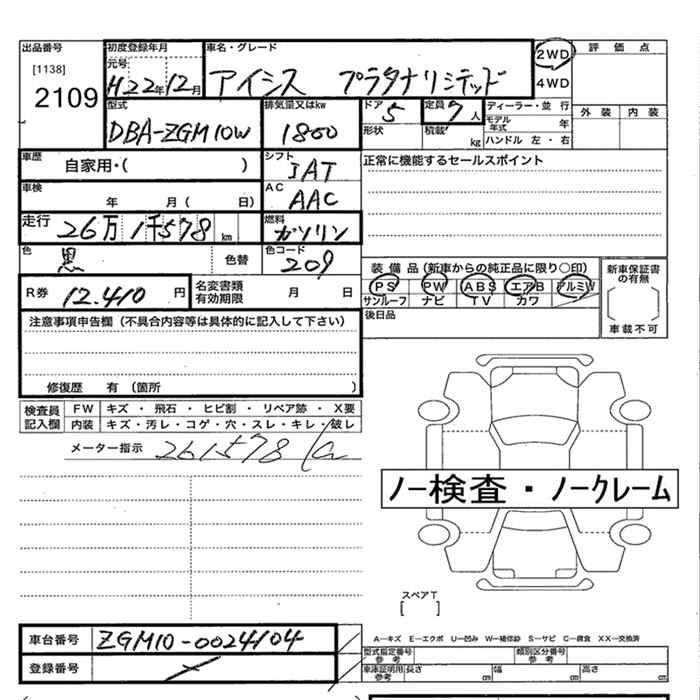 出品番号 初度登録年月 車名・グレード 2WD 評価点
[1138] 元号
2109 H22年12月 アイシス プラタナリミテッド 4WD
型式 排気量又はkw ドア 定員 ディーラー・並行 外装 内装
DBA-ZGM10W 1800 5 7人 モデル年式 年
形状 積載 kg ハンドル 左・右
車歴 自家用・( ) シフト IAT 正常に機能するセールスポイント
車検 年 月 ( 日) AC AAC
走行 26万1千578km 燃料 ガソリン
色 黒 色替 色コード 209 装備品(新車からの純正品に限り○印) 新車保証書の有無
R券 12.410円 名変書類有効期限 月 日 PS PW ABS エアB アルミW
サンルーフ ナビ TV カワ
注意事項申告欄(不具合内容等は具体的に記入して下さい) 後日品 車載不可
修復歴 有(箇所 )
検査員記入欄 FW キズ・飛石・ヒビ割・リペア跡・X要
内装 キズ・汚レ・コゲ・穴・スレ・キレ・破レ
メーター指示 261578
ノー検査・ノークレーム
スペアT
[ ]
車台番号 ZGM10-0024104 A―キズ E―エクボ U―凹み W―補修跡 S―サビ C―腐食 XX―交換済
登録番号 型式指定番号参考 類別区分番号参考
車庫証明用参考 長さ cm 幅 cm 高さ cm